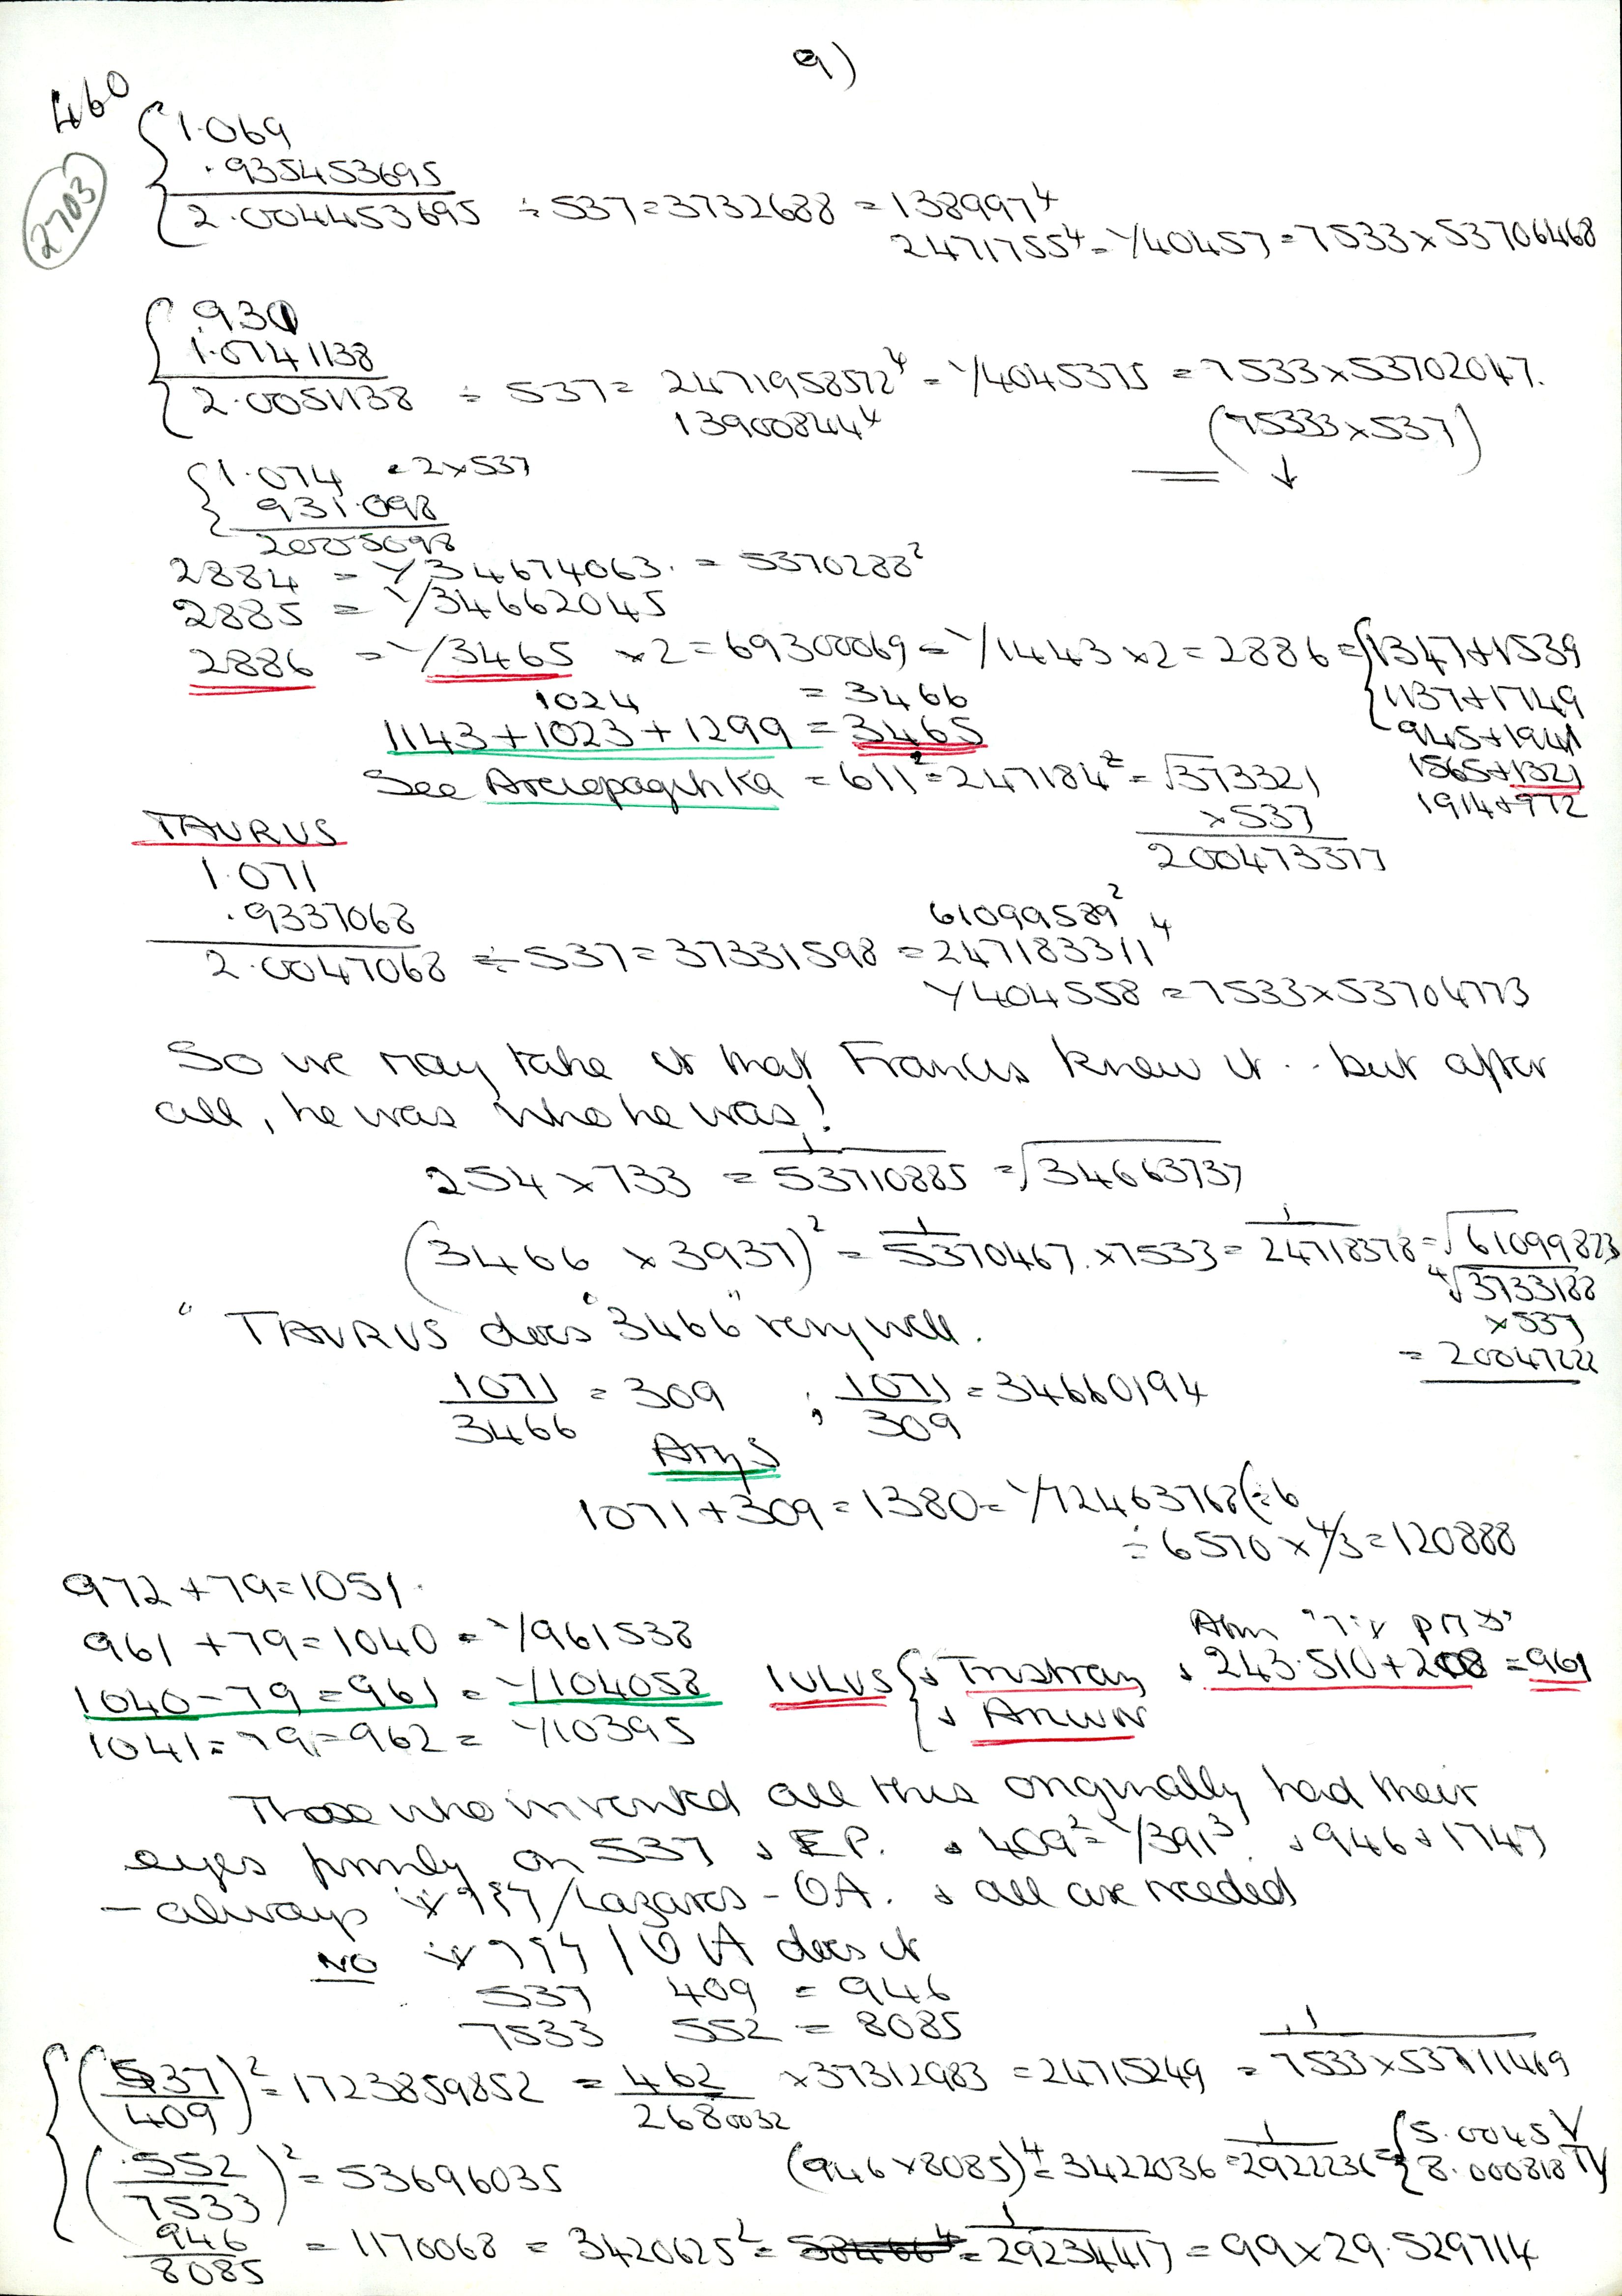 9)
460
2703
1.069
.935453695
2.004453695 ÷ 537 = 3732688 = 138997⁴
2471755⁴ = 1/40457 = 7533 x 53706468
.930
1.0741138
2.0051138 ÷ 537 = 2471958572⁴ = 1/4045375 = 7533 x 53702047.
13900844⁴ (75333 x 537)
1.074 = 2 x 537
931.098
2005098
2884 = 1/34674063. = 5370288²
2885 = 1/34662045
2886 = 1/3465 x 2 = 69300069 = 1/1443 x 2 = 2886 = 1347 + 1539
1024 = 3466 1137 + 1749
1143 + 1023 + 1299 = 3465 945 + 1941
See Areiopagitika = 611² = 247184² = √373321 1565 + 1321
x 537 1914 + 972
200473377
TAURUS
1.071
.9337068 61099589²
2.0047068 ÷ 537 = 37331598 = 247183311⁴
1/404558 = 7533 x 53704773
So we may take it that Francis knew it .. but after
all, he was who he was!
254 x 733 = 1/53710885 = √34663737
(3466 x 3937)² = 1/5370467. x 7533 = 1/24718378 = √61099823
⁴√3733188
x 537
= 20047222
" TAURUS does "3466" very well.
1071/3466 = 309 ; 1071/309 = 34660194
Atys
1071 + 309 = 1380 = 1/72463768 (÷ 6
÷ 6570 x 4/3 = 120888
972 + 79 = 1051.
961 + 79 = 1040 = 1/961538
1040 - 79 = 961 = 1/104058 IULUS Tristran 243.510 + 208 = 961
1041 - 79 = 962 = 1/10395
Those who invented all this originally had their
eyes firmly on 537 & EP. & 409² = 1/391³. & 946 & 1747
- always / Lazarus - OA. & all are needed
NO / OA does it
537 409 = 946
7533 552 = 8085
(537/409)² = 1723859852 = 462/2680032 x 37312983 = 24715249 = 1/7533 x 53711469
(.552/7533)² = 53696035 (946 x 8085)⁴ = 3422036 = 1/2922236 = 5.0045 V
8.000818 TY
946/8085 = 1170068 = 3420625² = 1/29234417 = 99 x 29.529714